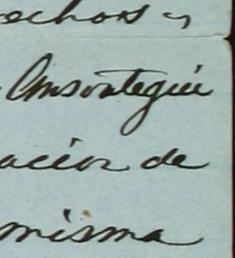 echos y
Amsontegui
acion de
misma